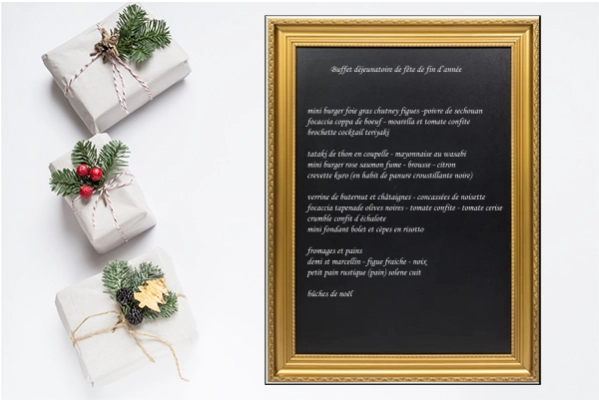 Buffet déjeunatoire de fête de fin d'année
mini burger foie gras chutney figues -poivre de sechouan
focaccia coppa de boeuf - moarella et tomate confite
brochette cocktail teriyaki
tataki de thon en coupelle - mayonnaise au wasabi
mini burger rose saumon fume - brousse - citron
crevette kuro (en habit de panure croustillante noire)
verrine de buternut et châtaignes - concassées de noisette
focaccia tapenade olives noires - tomate confite - tomate cerise
crumble confit d échalote
mini fondant bolet et cèpes en risotto
fromages et pains
demi st marcellin - figue fraiche - noix
petit pain rustique (pain) solene cuit
bûches de noël